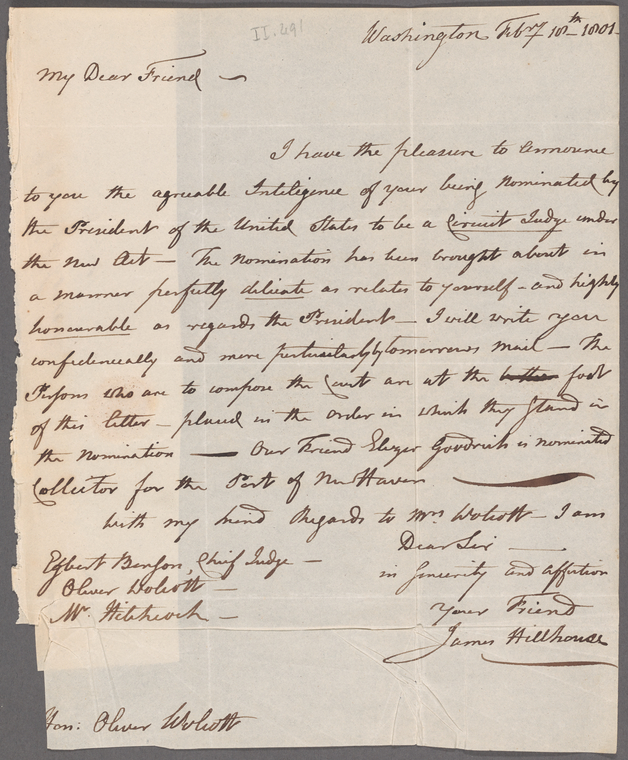 II.291
Washington Febry 18th 1801
My Dear Friend
I have the pleasure to announce
to you the agreeable Inteligence of your being Nominated by
the President of the United States to be a Circuit Judge under
the new Act — The Nomination has been brought about in
a manner perfectly delicate as relates to yourself – and highly
honourable as regards the President — I will write you
confidencially and more perticularly by tomorrows mail — The
Persons who are to compose the Court are at the foot
of this letter – placed in the order in which they stand in
the Nomination — Our Friend Elizer Goodrich is nominated
Collector for the Port of New Haven
With my kind Regards to Mrs Wolcott – I am
Dear Sir —
in Sincerity and affection
Your Friend
James Hillhouse
Egbert Benson, Chief Judge —
Oliver Wolcott —
Mr Hitchcock —
Hon: Oliver Wolcott